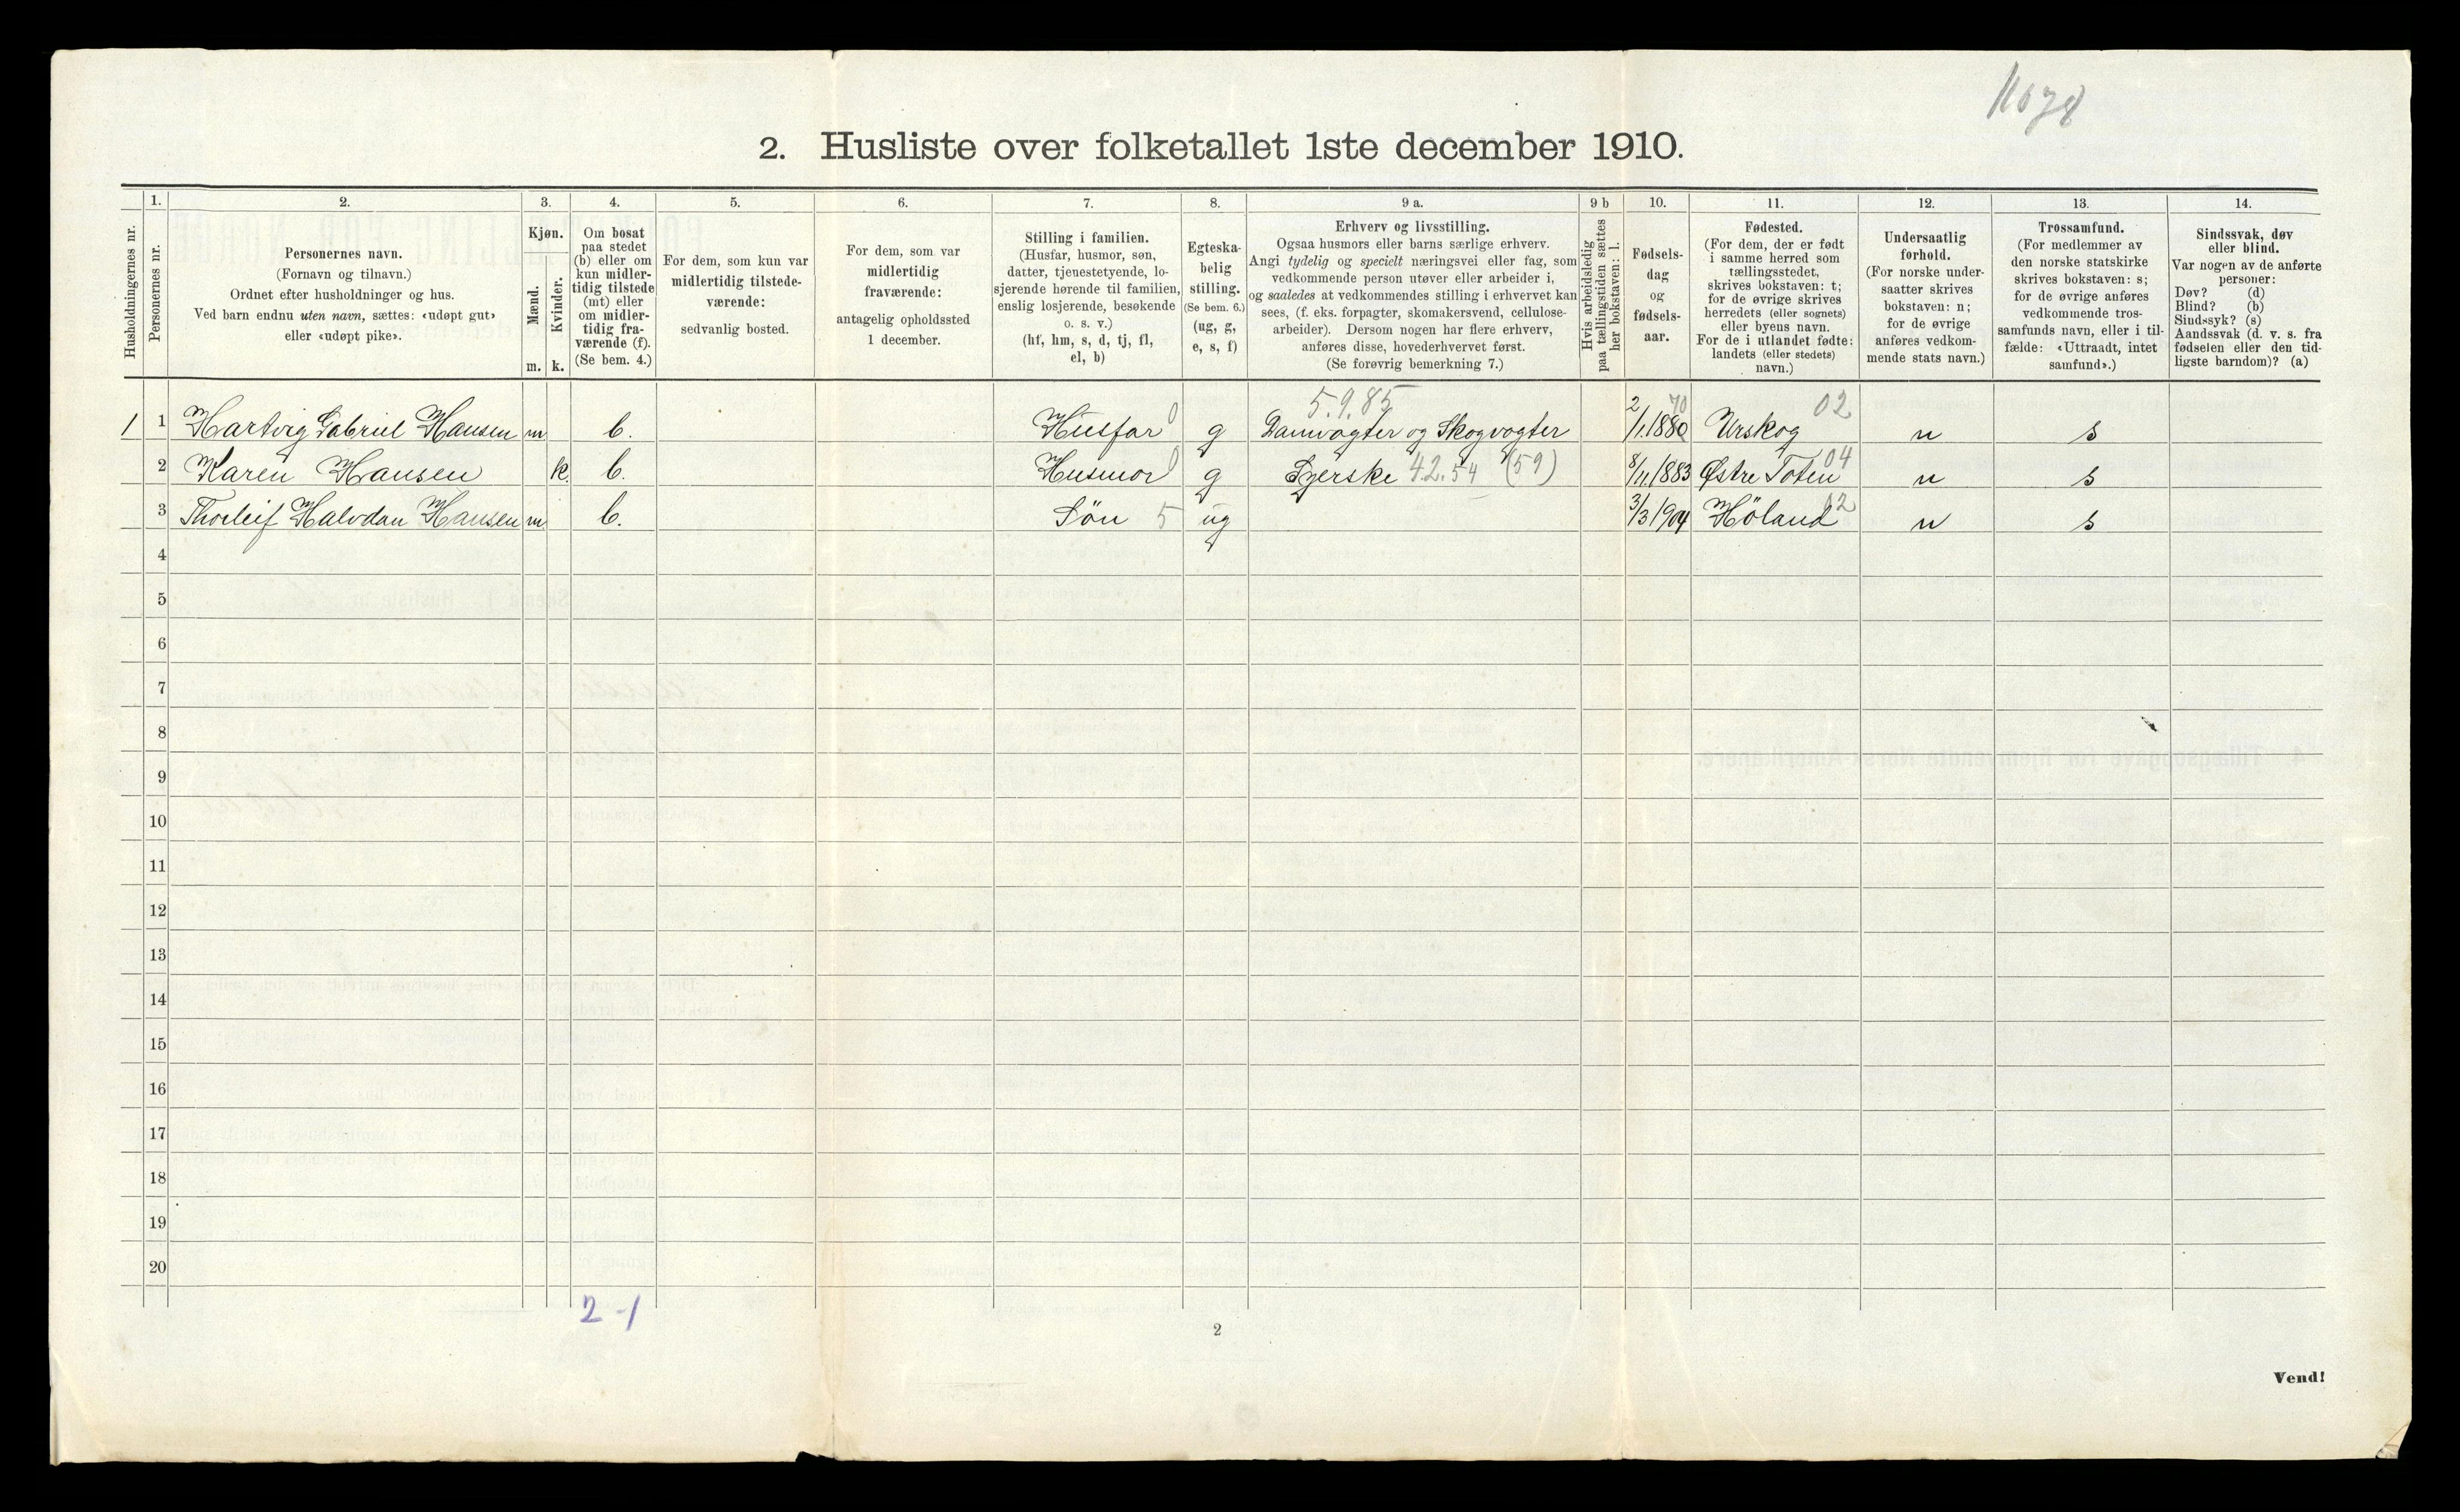 1078
2. Husliste over folketallet 1ste december 1910.
Husholdningernes nr.
1.
Personernes nr.
2.
Personernes navn.
(Fornavn og tilnavn.)
Ordnet efter husholdninger og hus.
Ved barn endnu uten navn, sættes: «udøpt gut»
eller «udøpt pike».
3.
Kjøn.
Mænd.
Kvinder.
m. k.
4.
Om bosat
paa stedet
(b) eller om
kun midler-
tidig tilstede
(mt) eller
om midler-
tidig fra-
værende (f).
(Se bem. 4.)
5.
For dem, som kun var
midlertidig tilstede-
værende:
sedvanlig bosted.
6.
For dem, som var
midlertidig
fraværende:
antagelig opholdssted
1 december.
7.
Stilling i familien.
(Husfar, husmor, søn,
datter, tjenestetyende, lo-
sjerende hørende til familien,
enslig losjerende, besøkende
o. s. v.)
(hf, hm, s, d, tj, fl,
el, b)
8.
Egteska-
belig
stilling.
(Se bem. 6.)
(ug, g,
e, s, f)
9 a.
Erhverv og livsstilling.
Ogsaa husmors eller barns særlige erhverv.
Angi tydelig og specielt næringsvei eller fag, som
vedkommende person utøver eller arbeider i,
og saaledes at vedkommendes stilling i erhvervet kan
sees, (f. eks. forpagter, skomakersvend, cellulose-
arbeider). Dersom nogen har flere erhverv,
anføres disse, hovederhvervet først.
(Se forøvrig bemerkning 7.)
9 b
Hvis arbeidsledig
paa tællingstiden sættes
her bokstaven: l.
10.
Fødsels-
dag
og
fødsels-
aar.
11.
Fødested.
(For dem, der er født
i samme herred som
tællingsstedet,
skrives bokstaven: t;
for de øvrige skrives
herredets (eller sognets)
eller byens navn.
For de i utlandet fødte:
landets (eller stedets)
navn.)
12.
Undersaatlig
forhold.
(For norske under-
saatter skrives
bokstaven: n;
for de øvrige
anføres vedkom-
mende stats navn.)
13.
Trossamfund.
(For medlemmer av
den norske statskirke
skrives bokstaven: s;
for de øvrige anføres
vedkommende tros-
samfunds navn, eller i til-
fælde: «Uttraadt, intet
samfund».)
14.
Sindssvak, døv
eller blind.
Var nogen av de anførte
personer:
Døv? (d)
Blind? (b)
Sindssyk? (s)
Aandssvak (d. v. s. fra
fødselen eller den tid-
ligste barndom)? (a)
5.9.85
1 1 Hartvig Gabriel Hansen m b. Husfar 0 g Damvogter og Skogvogter 2/1.1880 70 Urskog 02 n s
2 Karen Hansen k. b. Husmor 0 g Syerske 42.54 (59) 8/11.1883 Østre Toten 04 n s
3 Thorleif Halvdan Hansen m b. Søn 5 ug 3/3 1904 Höland 02 n s
4
5
6
7
8
9
10
11
12
13
14
15
16
17
18
19
20
2 - 1
2
Vend!